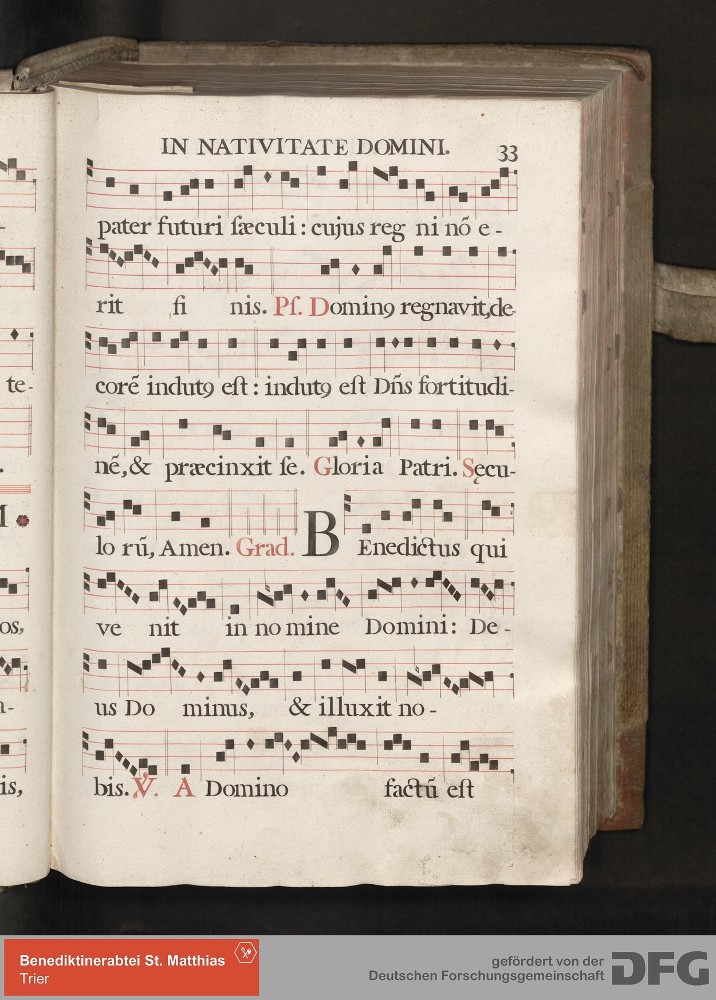 IN NATIVITATE DOMINI. 33
pater futuri ſæculi : cujus reg ni nõ e-
rit fi nis. Pſ. Dominꝯ regnavit, de-
te-
corẽ indutꝯ eſt : indutꝯ eſt Dñs fortitudi-
nẽ, & præcinxit ſe. Gloria Patri. Sęcu-
lo rũ, Amen. Grad. BEnedictus qui
os,
ve nit in no mine Domini: De-
a-
us Do minus, & illuxit no-
is,
bis. ℣. A Domino factũ eſt
Benediktinerabtei St. Matthias
Trier
gefördert von der
Deutschen Forschungsgemeinschaft
DFG